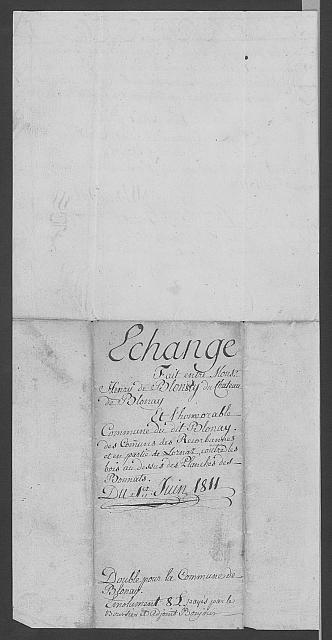 Echange
Fait entre Mons.r
Henry de Blonay du Chateau
de Blonay
Et l'honorable
Commune du dit Blonay.
des Comuns des
et en partie de contre les
bois au dessus des Planches des
Bonnats.
Du 1.er Juin 1811
Double pour la Commune de
Blonay.
Emolument 8 L payés par le
Boursier et Adjoint